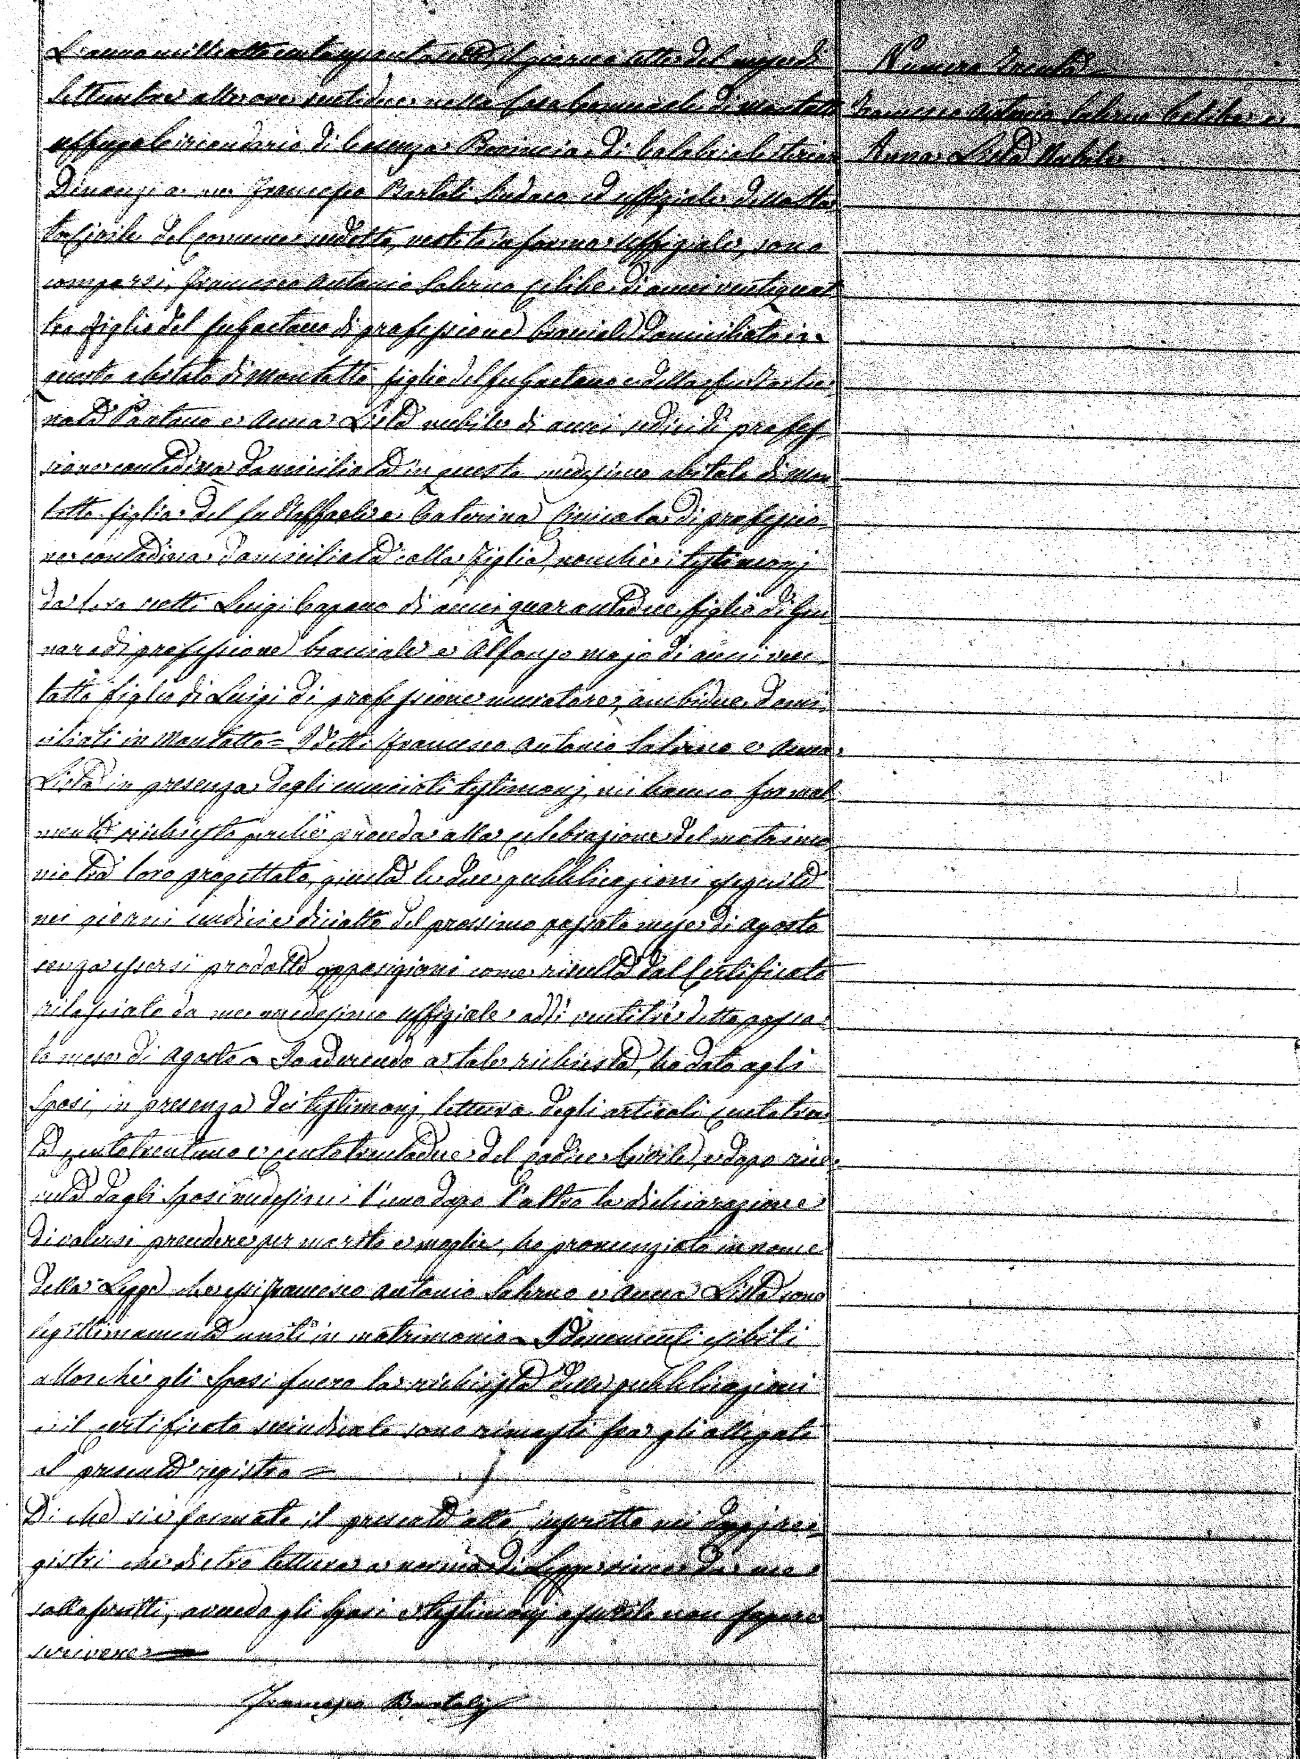 L'anno milleottocento il giorno sette del mese di
Settembre alle ore ventidue nella Casa Comunale di Montalto
Uffugo Circondario di Cosenza Provincia di Calabria Citeriore
Dinanzi a me Francesco Bartoli Sindaco ed uffiziale dello Sta
to Civile del Comune suddetto, vestito in forma uffiziale, sono
comparsi, Francesco Antonio Salerno celibe di anni ventiquat
tro figlio del fu Gaetano di professione bracciale domiciliato in
questo abitato di Montalto figlio del fu Gaetano e della fu
Pantano e Anna Lista nubile di anni sedici di profes
sione contadina domiciliata in questo medesimo abitato di Mon
talto figlia del fu Raffaele e Caterina di professio
ne contadina domiciliata colla figlia, nonchè i testimonj
da loro scelti Luigi Capano di anni quarantadue figlio di Gen
naro di professione bracciale e Alfonzo Majo di anni ven
totto figlio di Luigi di professione muratore, ambidue domi
ciliati in Montalto = I detti Francesco Antonio Salerno e Anna
Lista in presenza degli enunciati testimonj, mi hanno formal
mente richiesto perchè proceda alla celebrazione del matrimo
nio tra loro progettato, giusta le due pubblicazioni eseguite
nei giorni undici e diciotto del prossimo passato mese di Agosto
senza essersi prodotte opposizioni come risulta dal Certificato
rilasciato da me medesimo uffiziale addì ventitrè detto passa
to mese di Agosto = Io aderendo a tale richiesta, ho dato agli
Sposi, in presenza dei testimonj lettura degli articoli centotren
ta, centotrentuno e centotrentadue del Codice Civile, e dopo rice
vuta dagli Sposi medesimi l'uno dopo l'altro la dichiarazione
di volersi prendere per marito e moglie, ho pronunziato in nome
della Legge che essi Francesco Antonio Salerno e Anna Lista sono
legittimamente uniti in matrimonio = I documenti esibiti
allorchè gli Sposi fecero la richiesta delle pubblicazioni
e il certificato sono rimasti fra gli allegati
al presente registro =
Di che si è formato il presente atto, inscritto nei doppj re
gistri che dietro lettura a norma di Legge viene da me
sottoscritto, avendo gli Sposi e testimonj asserito non sapere
scrivere
Francesco Bartoli
Numero Trenta
Francesco Antonio Salerno Celibe e
Anna Lista Nubile